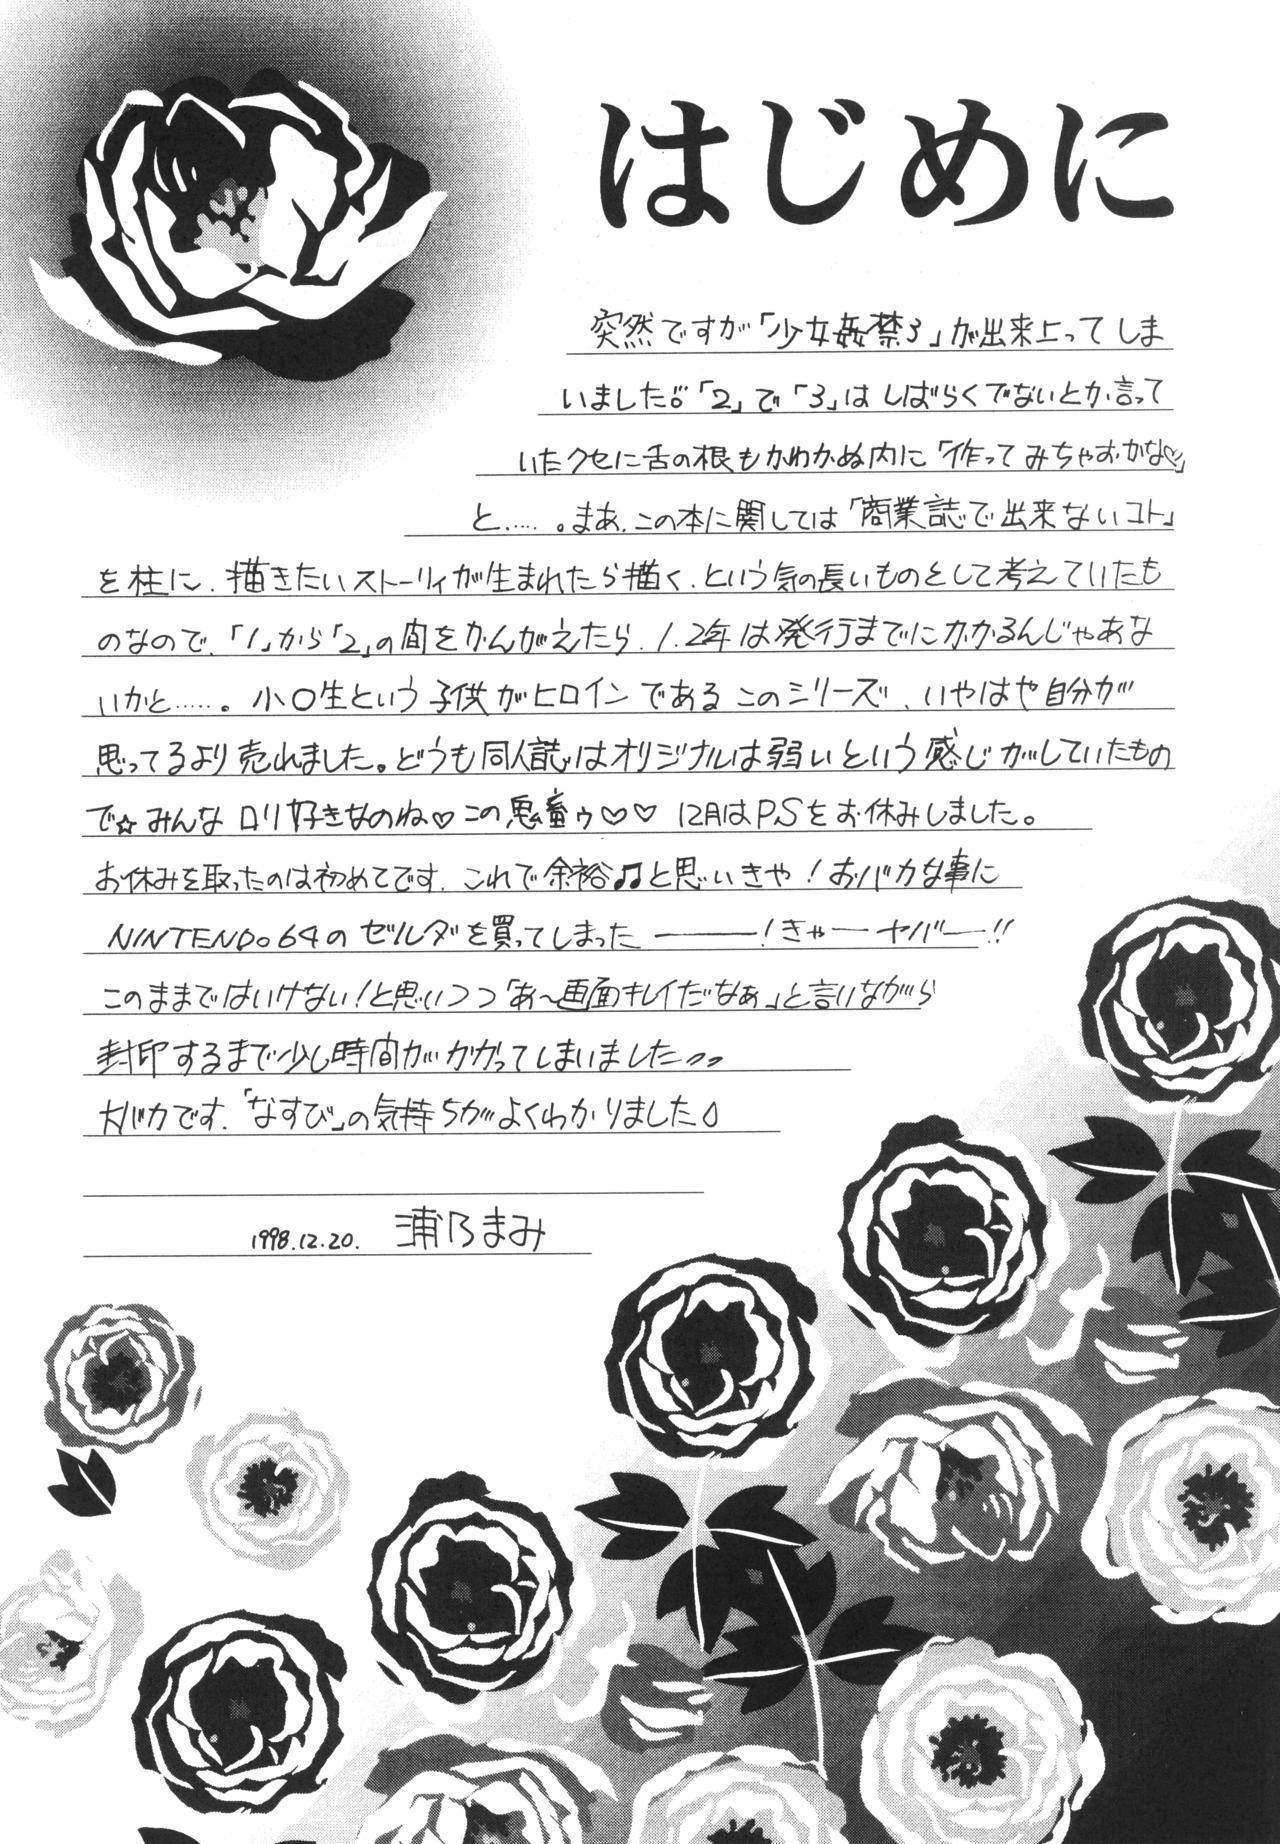 はじめに
突然ですが「少女姦禁3」が出来上ってしま
いました。「2」で「3」はしばらくでないとか言って
いたクセに舌の根もかわかぬ内に「作ってみちゃおかな♡」
と……。まあ、この本に関しては「商業誌で出来ないコト」
を柱に、描きたいストーリィが生まれたら描く、という気の長いものをとして考えていたも
のなので、「1」から「2」の間をかんがえたら、1、2年は発行までにかかるんじゃあな
いかと……。小〇生という子供がヒロインであるこのシリーズ、いやはや自分が
思ってるより売れました。どうも同人誌はオリジナルは弱いという感じがしていたもの
で☆みんなロリ好きなのね♡この鬼畜ゥ♡♡ 12月はP.Sをお休みしました。
お休みを取ったのは初めてです。これで余裕♫と思いきや!おバカな事に
NINTENDO64のゼルダを買ってしまった――――!きゃーヤバー!!
このままではいけない!と思いつつ「あ~画面キレイだなぁ」と言いながら
封印するまで少し時間がかかってしまいました
大バカです。「なすび」の気持ちがよくわかりました
1998.12.20. 浦乃まみ